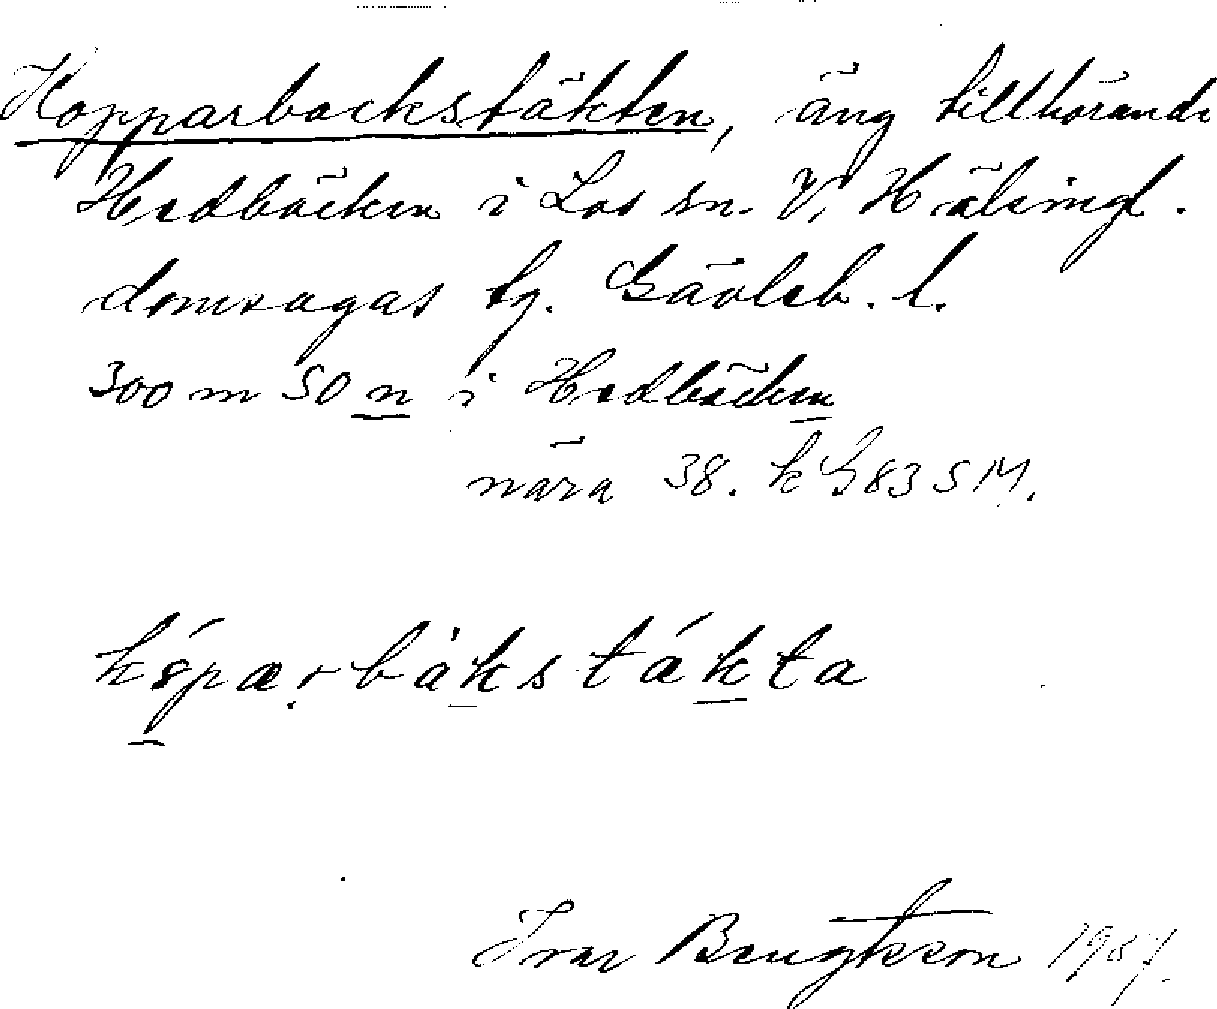 Kopparbackstäkten, äng tillhörande
Hedbäcken i Los sn. V. Hälsingl.
domsagas tg. Gävleb. l.
300 m SO n i Hedbäcken
nära 38. k G83 SM.
képær bàks tákta
Ivar Bengtsson 1937.